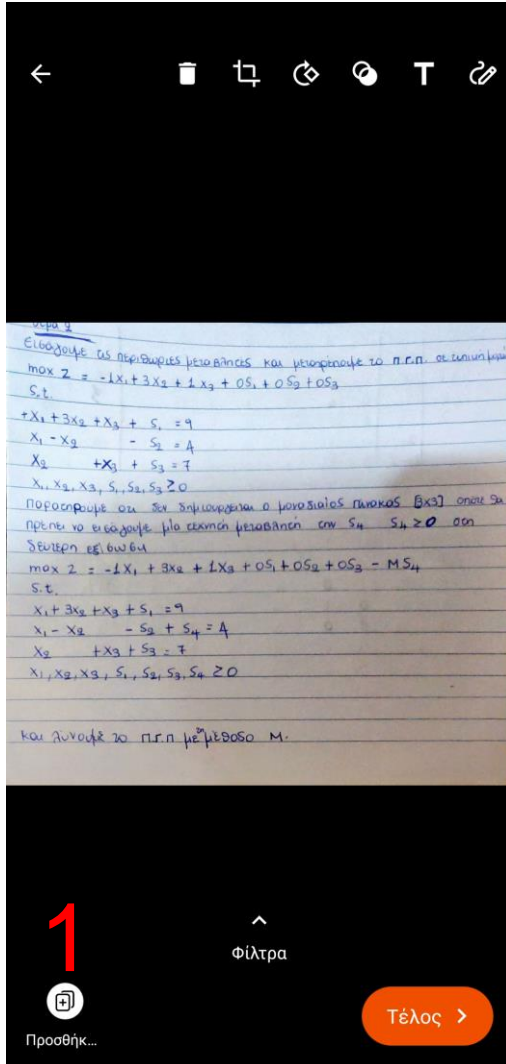 T
Θέμα 2
Εισάγουμε τις περιθώριες μεταβλητές και μετατρέπουμε το π.γ.π. σε τυπική μορφή
max Z = -1x₁ + 3x₂ + 1x₃ + 0S₁ + 0S₂ + 0S₃
S.t.
+x₁ + 3x₂ + x₃ + S₁ = 9
x₁ - x₂ - S₂ = 4
x₂ + x₃ + S₃ = 7
x₁, x₂, x₃, S₁, S₂, S₃ ≥ 0
Παρατηρουμε οτι δεν δημιουργειται ο μοναδιαίος πινακας [3x3] οποτε θα
πρέπει να εισάγουμε μία τεχνητή μεταβλητή την S₄ S₄ ≥ 0 στη
δευτερη εξισωση
max Z = -1x₁ + 3x₂ + 1x₃ + 0S₁ + 0S₂ + 0S₃ - MS₄
S.t.
x₁ + 3x₂ + x₃ + S₁ = 9
x₁ - x₂ - S₂ + S₄ = 4
x₂ + x₃ + S₃ = 7
x₁, x₂, x₃, S₁, S₂, S₃, S₄ ≥ 0
και λύνουμε το π.γ.π με τη μέθοδο M.
1
Φίλτρα
Προσθήκ...
Τέλος >